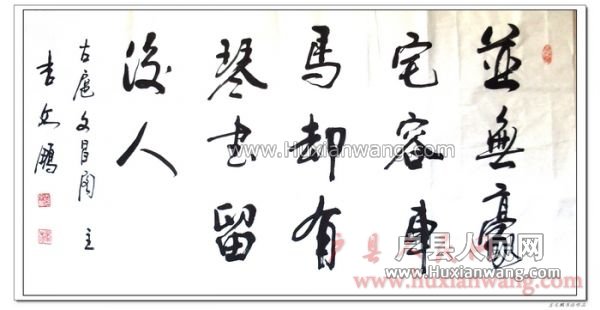 並無豪
宅容車
馬却有
琴書留
後人
古扈文昌阁主
李文鹏
www.Huxianwang.com
户县人民网
www.Huxianwang.com
户县
www.huxianwang.com